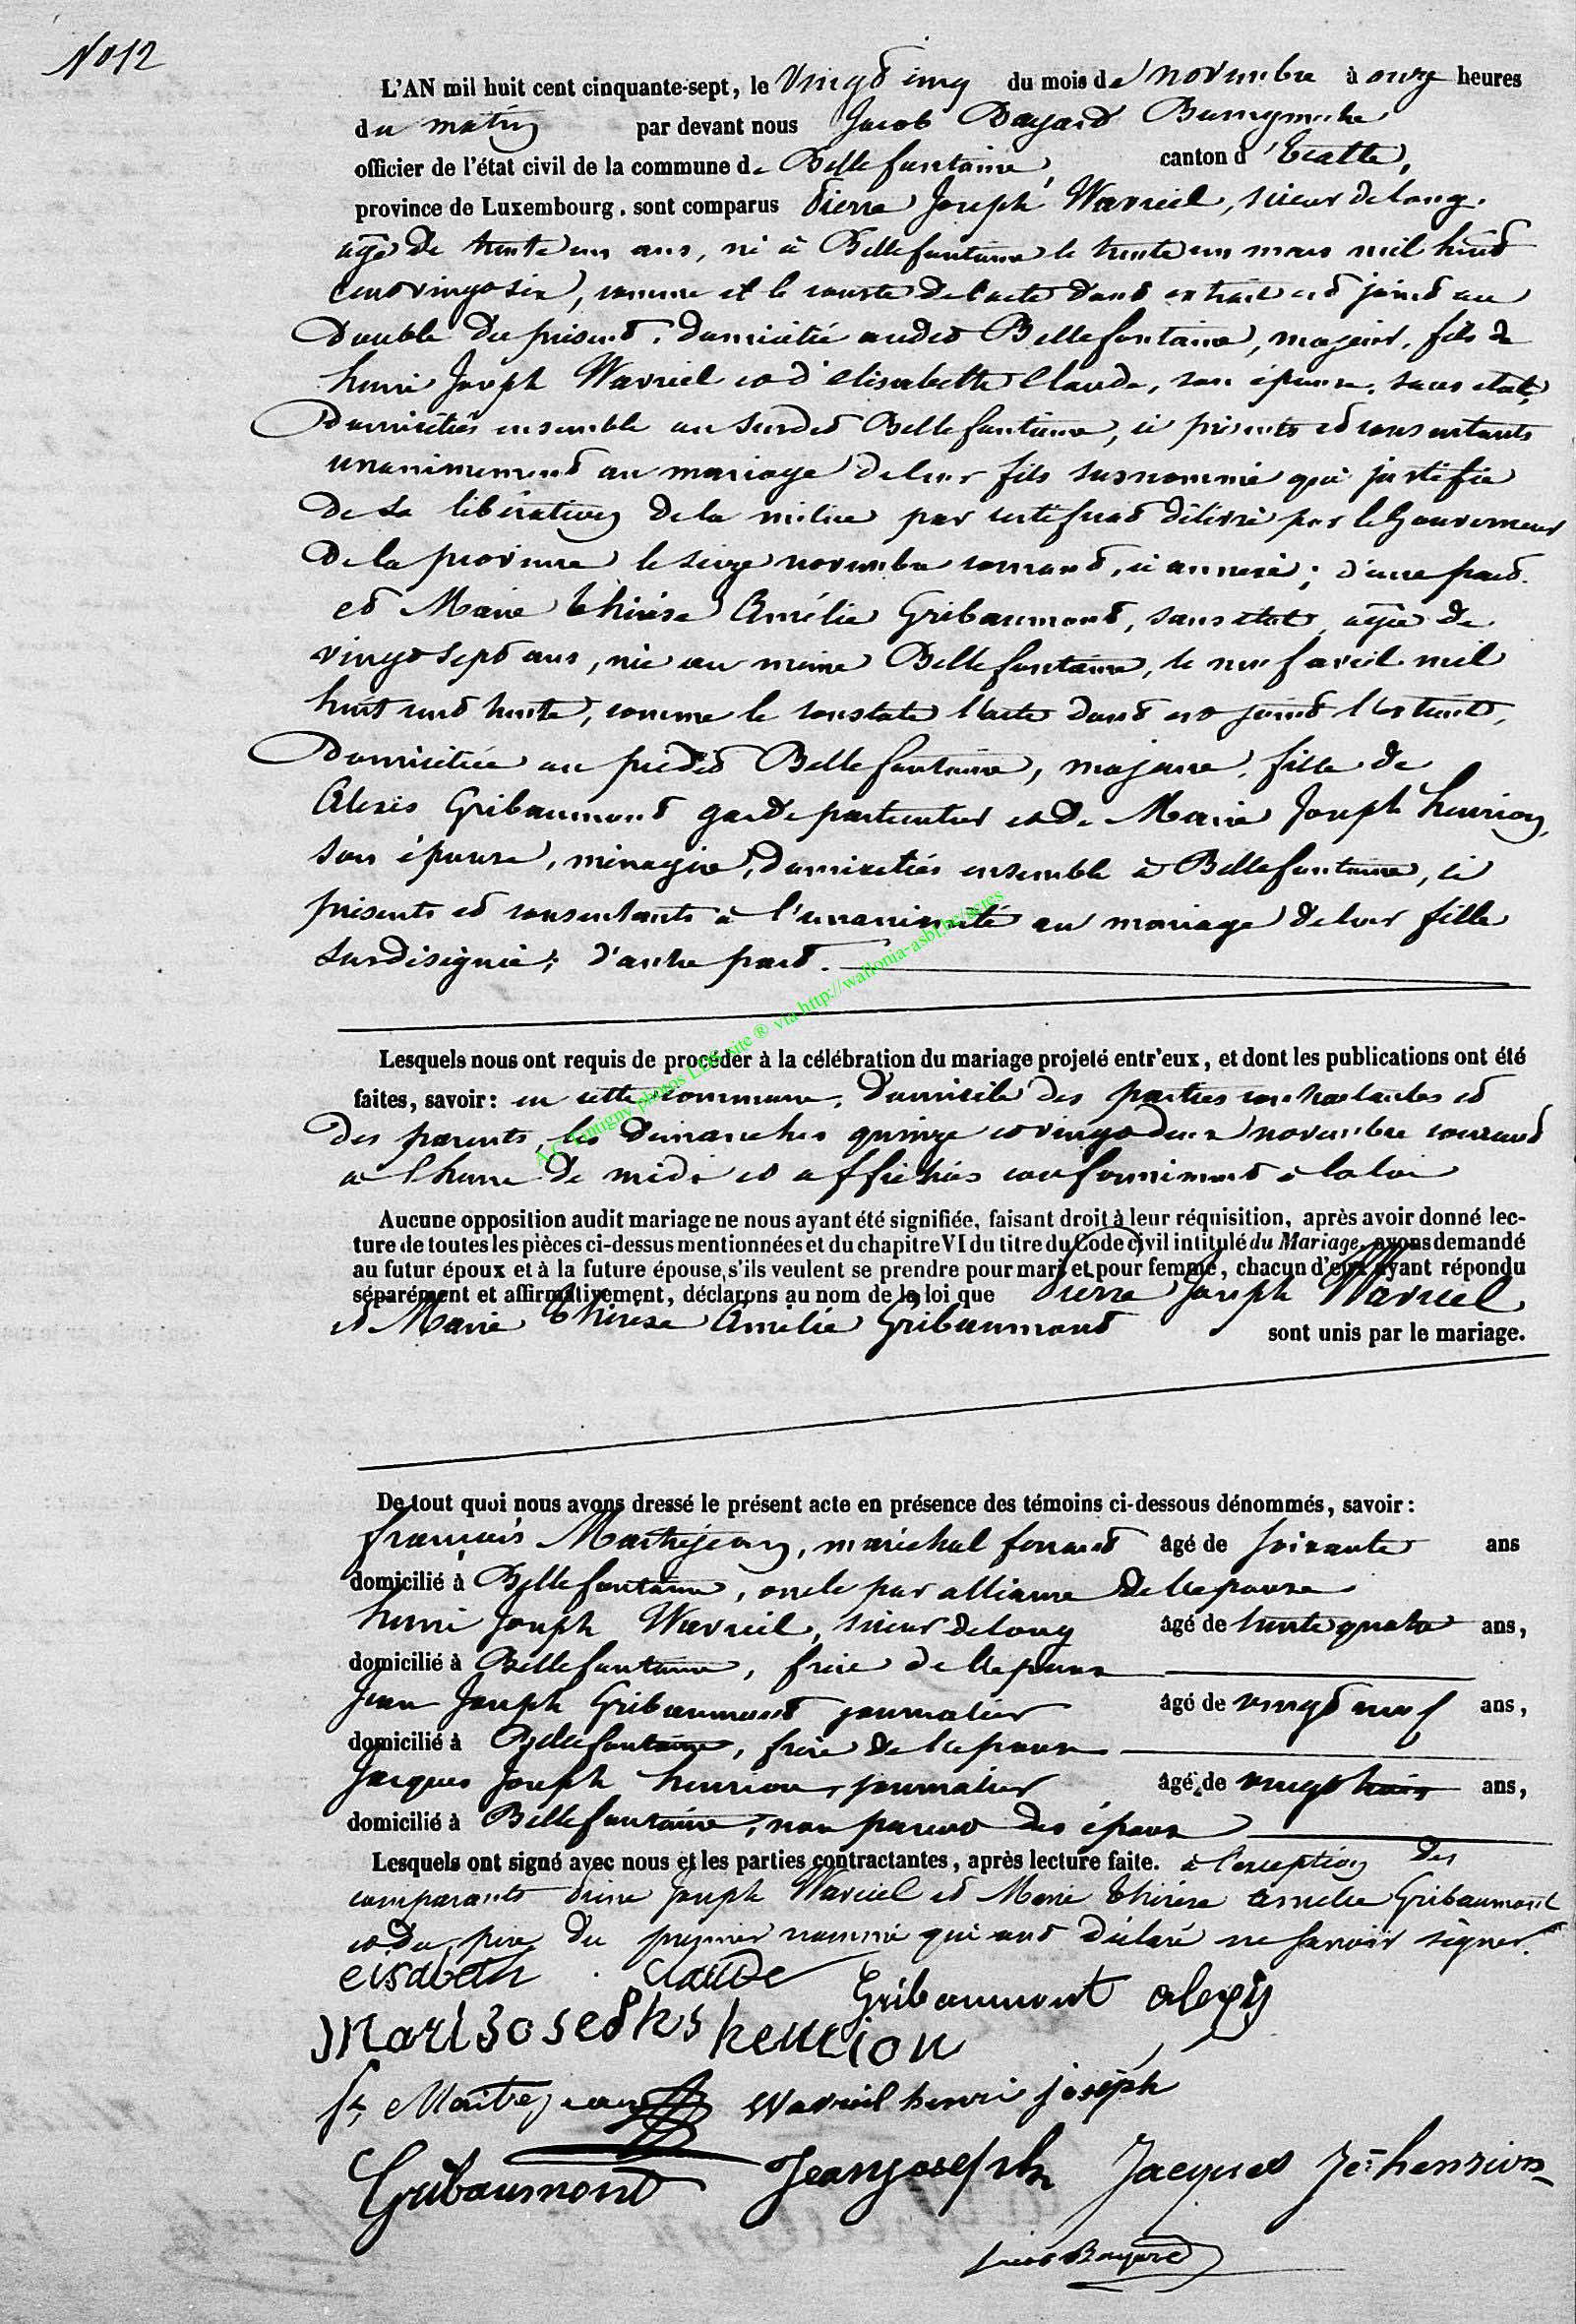 N° 12
L'AN mil huit cent cinquante-sept, le vingt cinq du mois de novembre à onze heures
du matin par devant nous Jacob Bayard Bourgmestre
officier de l'état civil de la commune de Bellefontaine, canton d'Etalle,
province de Luxembourg, sont comparus Pierre Joseph Wavreil, scieur de long,
âgé de trente un ans, né à Bellefontaine le trente un mars mil huit
cent vingt six, comme il le conste de l'acte dont extrait est joint au
double du présent, domicilié audit Bellefontaine, majeur, fils de
henri Joseph Wavreil et d'elisabette Claude, son épouse, sans état,
domiciliés ensemble au susdit Bellefontaine, ci présents et consentants
unanimement au mariage de leur fils susnommé qui justifie
de sa libération de la milice par certificat délivré par le Gouverneur
de la province le seize novembre courant, ci annexé; d'une part.
et Marie thérèse Amélie Gribaumont, sans état, agée de
vingt sept ans, née au même Bellefontaine, le neuf avril mil
huit cent trente, comme le constate l'acte dont est joint l'extrait,
domiciliée au prédit Bellefontaine, majeure, fille de
Alexis Gribaumont garde particulier et de Marie Joseph henrion,
son épouse, ménagère, domiciliés ensemble à Bellefontaine, ci
présents et consentants à l'unanimité au mariage de leur fille
susdésignée; d'autre part.
A.C. Tintigny photos LDS site ® via http://wallonia-asbl.be/actes
Lesquels nous ont requis de procéder à la célébration du mariage projeté entr'eux, et dont les publications ont été
faites, savoir: en cette commune, domicile des parties contractantes et
des parents, les dimanches quinze et vingt deux novembre courant
à l'heure de midi et affichées conformément à la loi
Aucune opposition audit mariage ne nous ayant été signifiée, faisant droit à leur réquisition, après avoir donné lec-
ture de toutes les pièces ci-dessus mentionnées et du chapitre VI du titre du Code civil intitulé du Mariage, avons demandé
au futur époux et à la future épouse, s'ils veulent se prendre pour mari et pour femme, chacun d'eux ayant répondu
séparément et affirmativement, déclarons au nom de la loi que Pierre Joseph Wavreil
et Marie thérèse Amélie Gribaumont sont unis par le mariage.
De tout quoi nous avons dressé le présent acte en présence des témoins ci-dessous dénommés, savoir:
françois Maitrejean, maréchal ferrant âgé de soixante ans
domicilié à Bellefontaine, oncle par alliance de l'épouse
henri Joseph Wavreil, scieur de long âgé de trente quatre ans,
domicilié à Bellefontaine, frère de l'époux
Jean Joseph Gribaumont journalier âgé de vingt neuf ans,
domicilié à Bellefontaine, frère de l'épouse
Jacques Joseph henrion, journalier âgé de vingt trois ans,
domicilié à Bellefontaine, non parent des époux
Lesquels ont signé avec nous et les parties contractantes, après lecture faite. à l'exception des
comparants Pierre Joseph Wavreil et Marie thérèse Amélie Gribaumont
et du père du premier nommé qui ont déclaré ne savoir signer.
eisabeth Claude
Gribaumont alexis
Mari Josephs henrion
fs Maitrejean Wavreil henri joseph
Gribaumont Jeanjoseph Jacques Jh henrion
Jacob Bayard